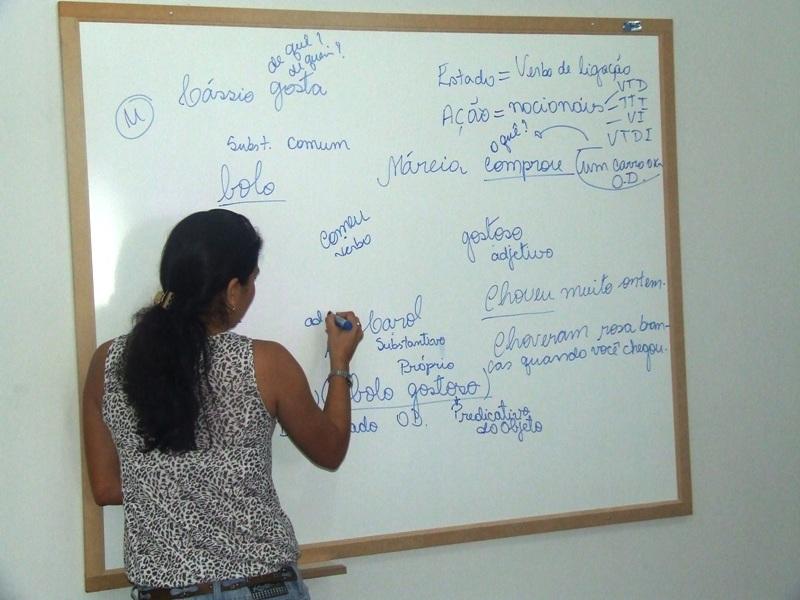 de quê?
de quem?
M
Cássio gosta
Estado = Verbo de ligação
Ação = nocionais
VTD
TTI
VI
VTDI
o quê?
Subst. comum
Márcia comprou um carro
O.D.
bolo
comeu
verbo
gostoso
adjetivo
Choveu muito ontem.
ad
Carol
Substantivo
Próprio
Choveram rosa bran-
cas quando você chegou.
bolo gostoso
ado O.D. Predicativo
do Objeto